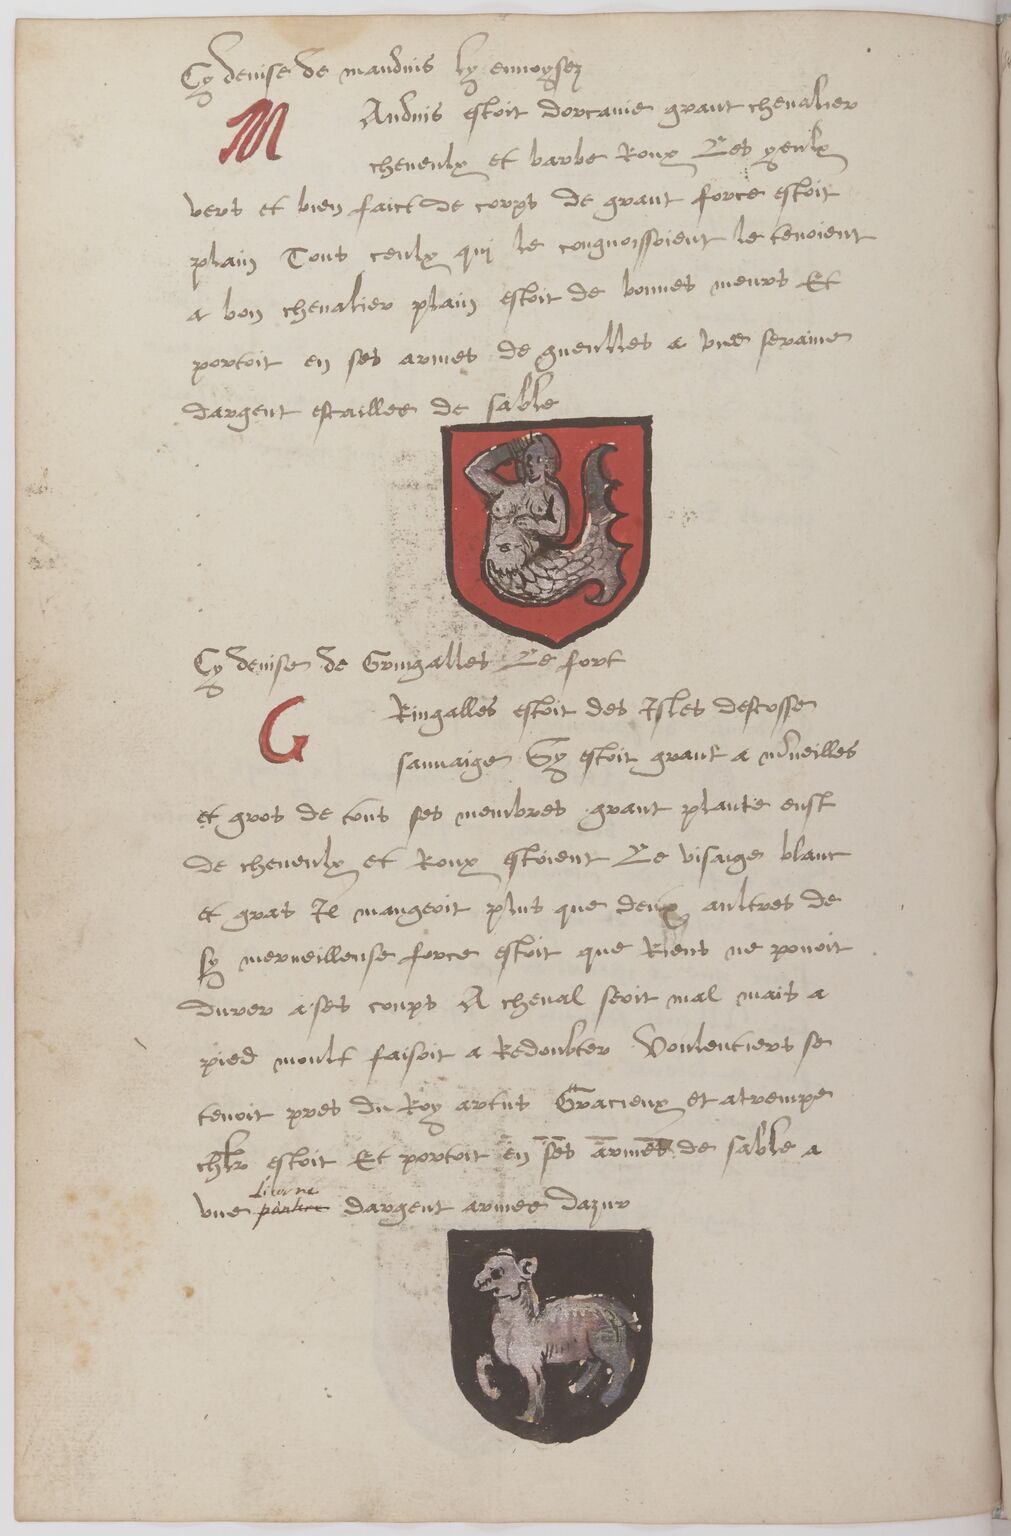 Cy deuise de mauduis ly enuoysez
M Auduis estoit dorcanie grant cheualier
cheueulx et barbe Roux Les yeulx
vers et bien faict de corps de grant force estoit
plain Tous ceulx quj le congnoissoient le tenoient
a bon cheualier plain estoit de bonnes meurs Et
portoit en ses armes de gueulles a vne seraine
dargent escaillee de sable
Cy deuise de Gringalles Le fort
G Ringalles estoit des Isles descosse
sauuaige Sy estoit grant a mrueilles
et gros de tous ses membres grant plante eust
de cheueulx et Roux estoient Le visaige blanc
et gras Il mangeoit plus que deux aultres de
sy merueilleuse force estoit que Riens ne pouoit
durer a ses coups A cheual seoit mal mais a
pied moult faisoit a Redoubter Voulentiers se
tenoit pres du Roy artus Gracieux et atrempe
chlr estoit Et portoit en ses armes de sable a
licorne
vne pantere dargent armee dazur